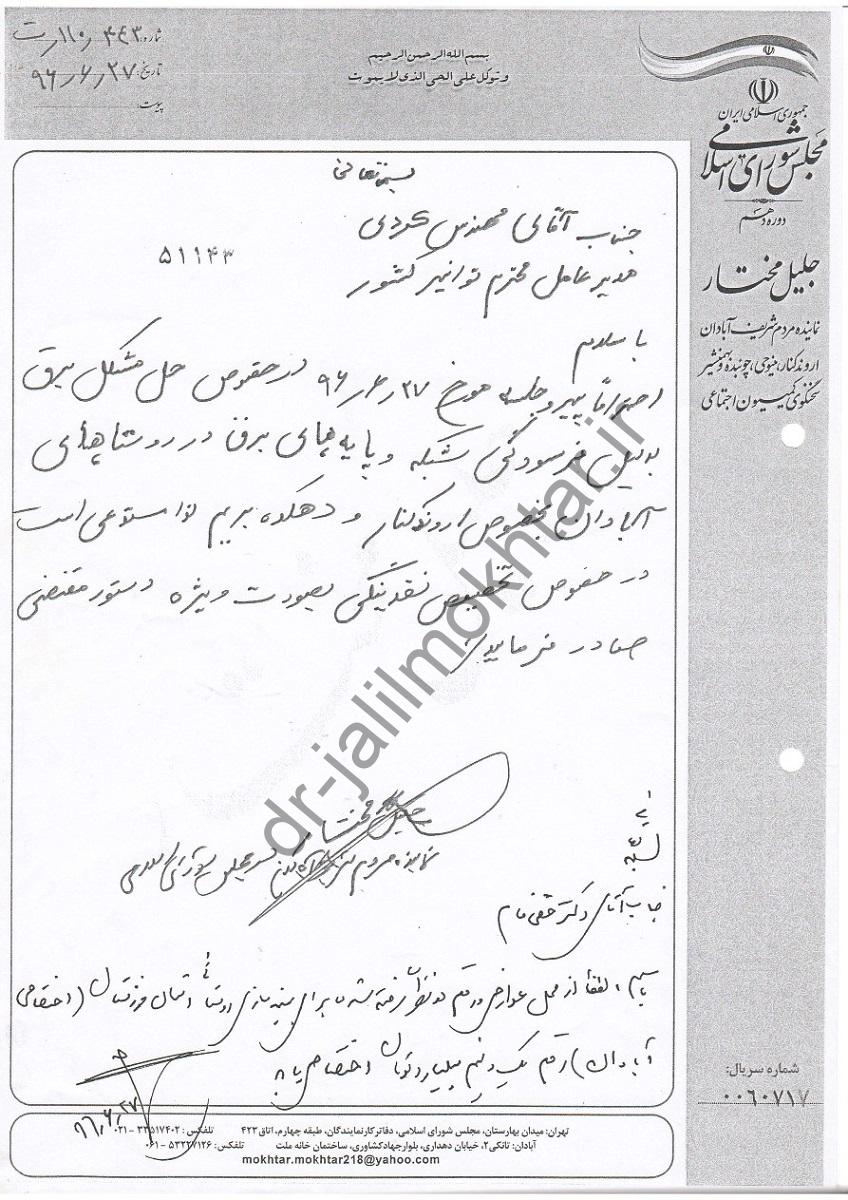 شماره: ۱۱۰٫۴۴۳٫ت
تاریخ: ۹۶٫۶٫۲۷
پیوست:
بسم الله الرحمن الرحیم
وتوکل علی الحی الذی لایموت
جمهوری اسلامی ایران
مجلس شورای اسلامی
دوره دهم
جلیل مختار
نماینده مردم شریف آبادان
اروندکنار، مینوحی، چوبنده و بهمنشیر
سخنگوی کمیسیون اجتماعی
بسمه تعالی
جناب آقای مهندس کردی
۵۱۱۴۳
مدیر عامل محترم توانیر کشور
با سلام
احتراماً پیرو جلسه مورخ ۹۶٫۶٫۲۷ در خصوص حل مشکل برق
بدلیل فرسودگی شبکه و پایه های برق در روستاهای
آبادان بخصوص اروندکنار و دهکده بریم لذا مستدعی است
در خصوص تخصیص نقدینگی بصورت ویژه دستور مقتضی
صادر فرمایید
جلیل مختار
نماینده مردم شریف آبادان در مجلس شورای اسلامی
بسمه
جناب آقای دکتر حقی فام
با سلام، لطفاً از محل عوارض و رقم در نظر گرفته شده برای بهینه سازی روستا (اختصاصی
آبادان) رقم یک و نیم میلیارد تومان اختصاص یابد
۹۶٫۶٫۲۷
dr-jalilmokhtar.ir
شماره سریال:
۰۰۶۰۷۱۷
تهران: میدان بهارستان، مجلس شورای اسلامی، دفاتر کار نمایندگان، طبقه چهارم، اتاق ۴۲۳ تلفکس: ۳۳۵۱۷۴۰۲-۰۲۱
آبادان: تانکی۲، خیابان دهداری، بلوار جهاد کشاورزی، ساختمان خانه ملت تلفکس: ۵۳۲۲۷۱۲۶-۰۶۱
mokhtar.mokhtar218@yahoo.com